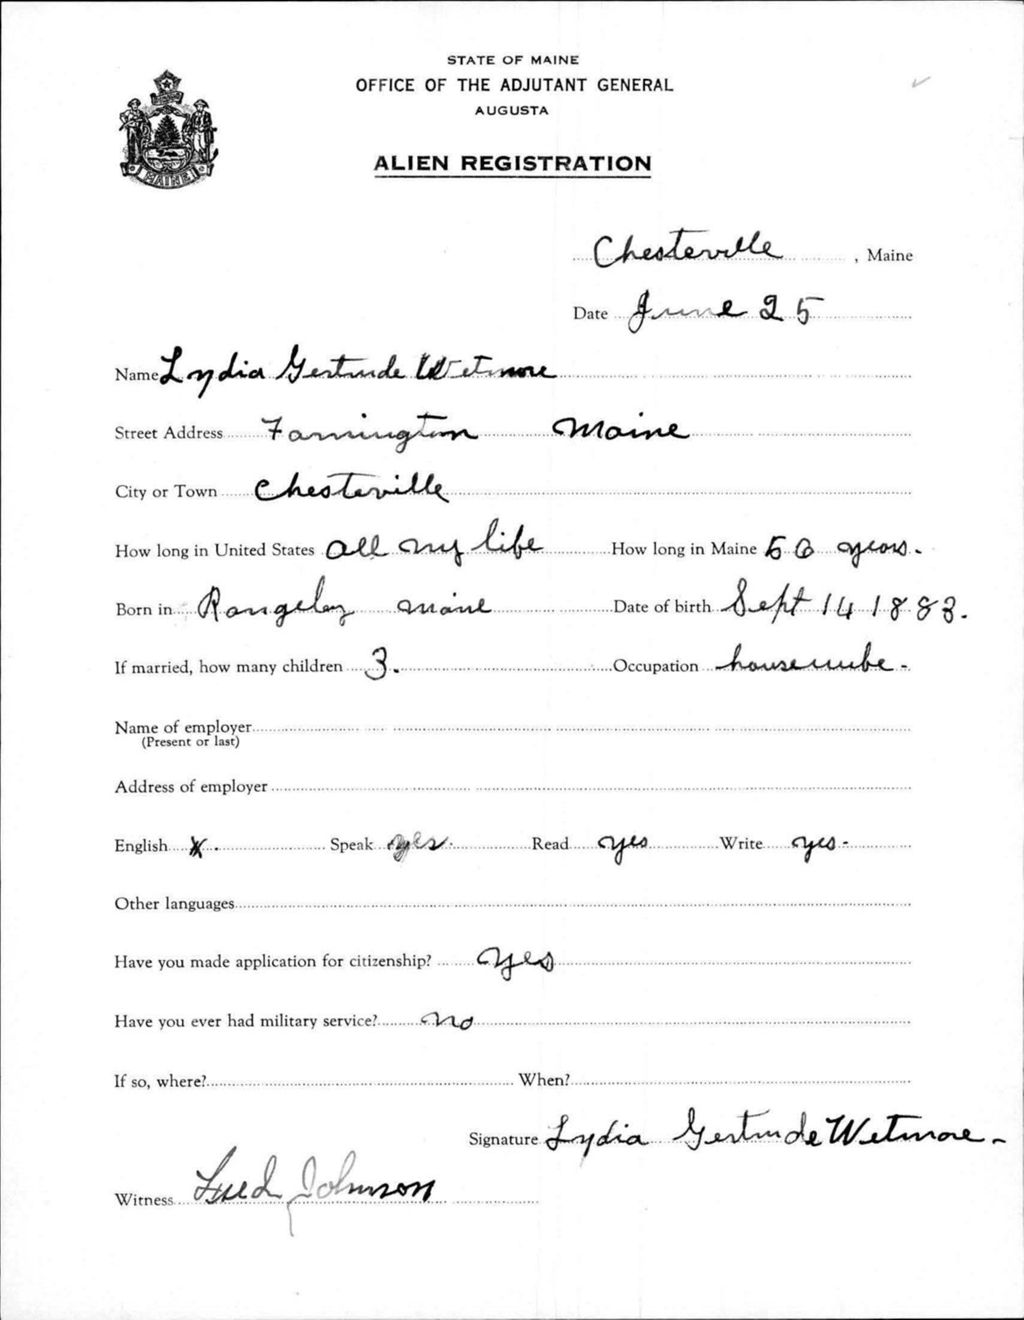 STATE OF MAINE
OFFICE OF THE ADJUTANT GENERAL
AUGUSTA
ALIEN REGISTRATION
MAINE
Chesterville, Maine
Date June 25
Name Lydia Gertrude Wetmore
Street Address Farmington Maine
City or Town Chesterville
How long in United States all my life How long in Maine 56 years.
Born in Rangeley Maine Date of birth Sept 14 1883.
If married, how many children 3. Occupation housewife -
Name of employer
(Present or last)
Address of employer
English X. Speak yes. Read yes Write yes-
Other languages
Have you made application for citizenship? yes
Have you ever had military service? no
If so, where? When?
Signature Lydia Gertrude Wetmore -
Witness Fred Johnson